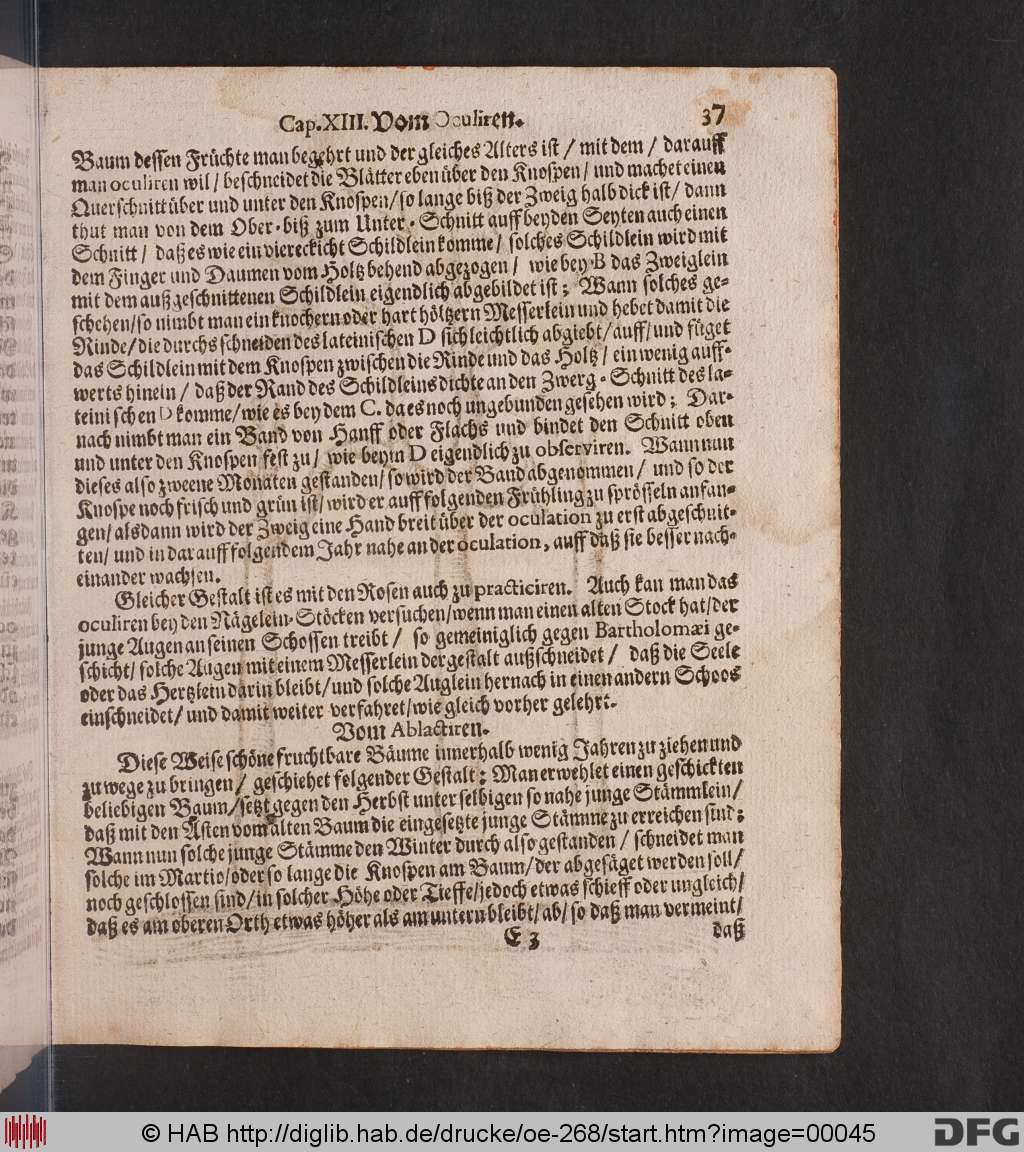 Cap.XIII. Vom Oculiren. 37
Baum dessen Früchte man begehrt und der gleiches Alters ist / mit dem / darauff
man oculiren wil / beschneidet die Blätter eben über den Knospen / und machet einen
Querschnitt über und unter den Knospen / so lange biß der Zweig halb dick ist / dann
thut man von dem Ober-biß zum Unter-Schnitt auff beyden Seyten auch einen
Schnitt / daß es wie ein viereckicht Schildlein komme / solches Schildlein wird mit
dem Finger und Daumen vom Holtz behend abgezogen / wie bey B das Zweiglein
mit dem außgeschnittenen Schildlein eigendlich abgebildet ist; Wann solches ge-
schehen / so nimbt man ein knochern oder hart höltzern Messerlein und hebet damit die
Rinde / die durchs schneiden des lateinischen D sich leichtlich abgiebt / auff / und füget
das Schildlein mit dem Knospen zwischen die Rinde und das Holtz / ein wenig auff-
werts hinein / daß der Rand des Schildleins dichte an den Zwerg-Schnitt des la-
teinischen D komme / wie es bey dem C. da es noch ungebunden gesehen wird; Dar-
nach nimbt man ein Band von Hanff oder Flachs und bindet den Schnitt oben
und unter den Knospen fest zu / wie beym D eigendlich zu observiren. Wann nun
dieses also zweene Monaten gestanden / so wird der Band abgenommen / und so der
Knospe noch frisch und grün ist / wird er auff folgenden Frühling zu sprösseln anfan-
gen / alsdann wird der Zweig eine Hand breit über der oculation zu erst abgeschnit-
ten / und in darauff folgendem Jahr nahe an der oculation, auff daß sie besser nach-
einander wachsen.
Gleicher Gestalt ist es mit den Rosen auch zu practiciren. Auch kan man das
oculiren bey den Nägelein-Stöcken versuchen / wenn man einen alten Stock hat / der
junge Augen an seinen Schossen treibt / so gemeiniglich gegen Bartholomæi ge-
schicht / solche Augen mit einem Messerlein dergestalt außschneidet / daß die Seele
oder das Hertzlein darin bleibt / und solche Auglein hernach in einen andern Schoos
einschneidet / und damit weiter verfahret / wie gleich vorher gelehrt.
Vom Ablactiren.
Diese Weise schöne fruchtbare Bäume innerhalb wenig Jahren zu ziehen und
zu wege zu bringen / geschiehet folgender Gestalt: Man erwehlet einen geschickten
beliebigen Baum / setzt gegen den Herbst unter selbigen so nahe junge Stämmlein /
daß mit den Ästen vom alten Baum die eingesetzte junge Stämme zu erreichen sind:
Wann nun solche junge Stämme den Winter durch also gestanden / schneidet man
solche im Martio / oder so lange die Knospen am Baum / der abgesäget werden soll /
noch geschlossen sind / in solcher Höhe oder Tieffe / jedoch etwas schieff oder ungleich /
daß es am oberen Orth etwas höher als am untern bleibt / ab / so daß man vermeint /
E 3 daß
© HAB http://diglib.hab.de/drucke/oe-268/start.htm?image=00045 DFG